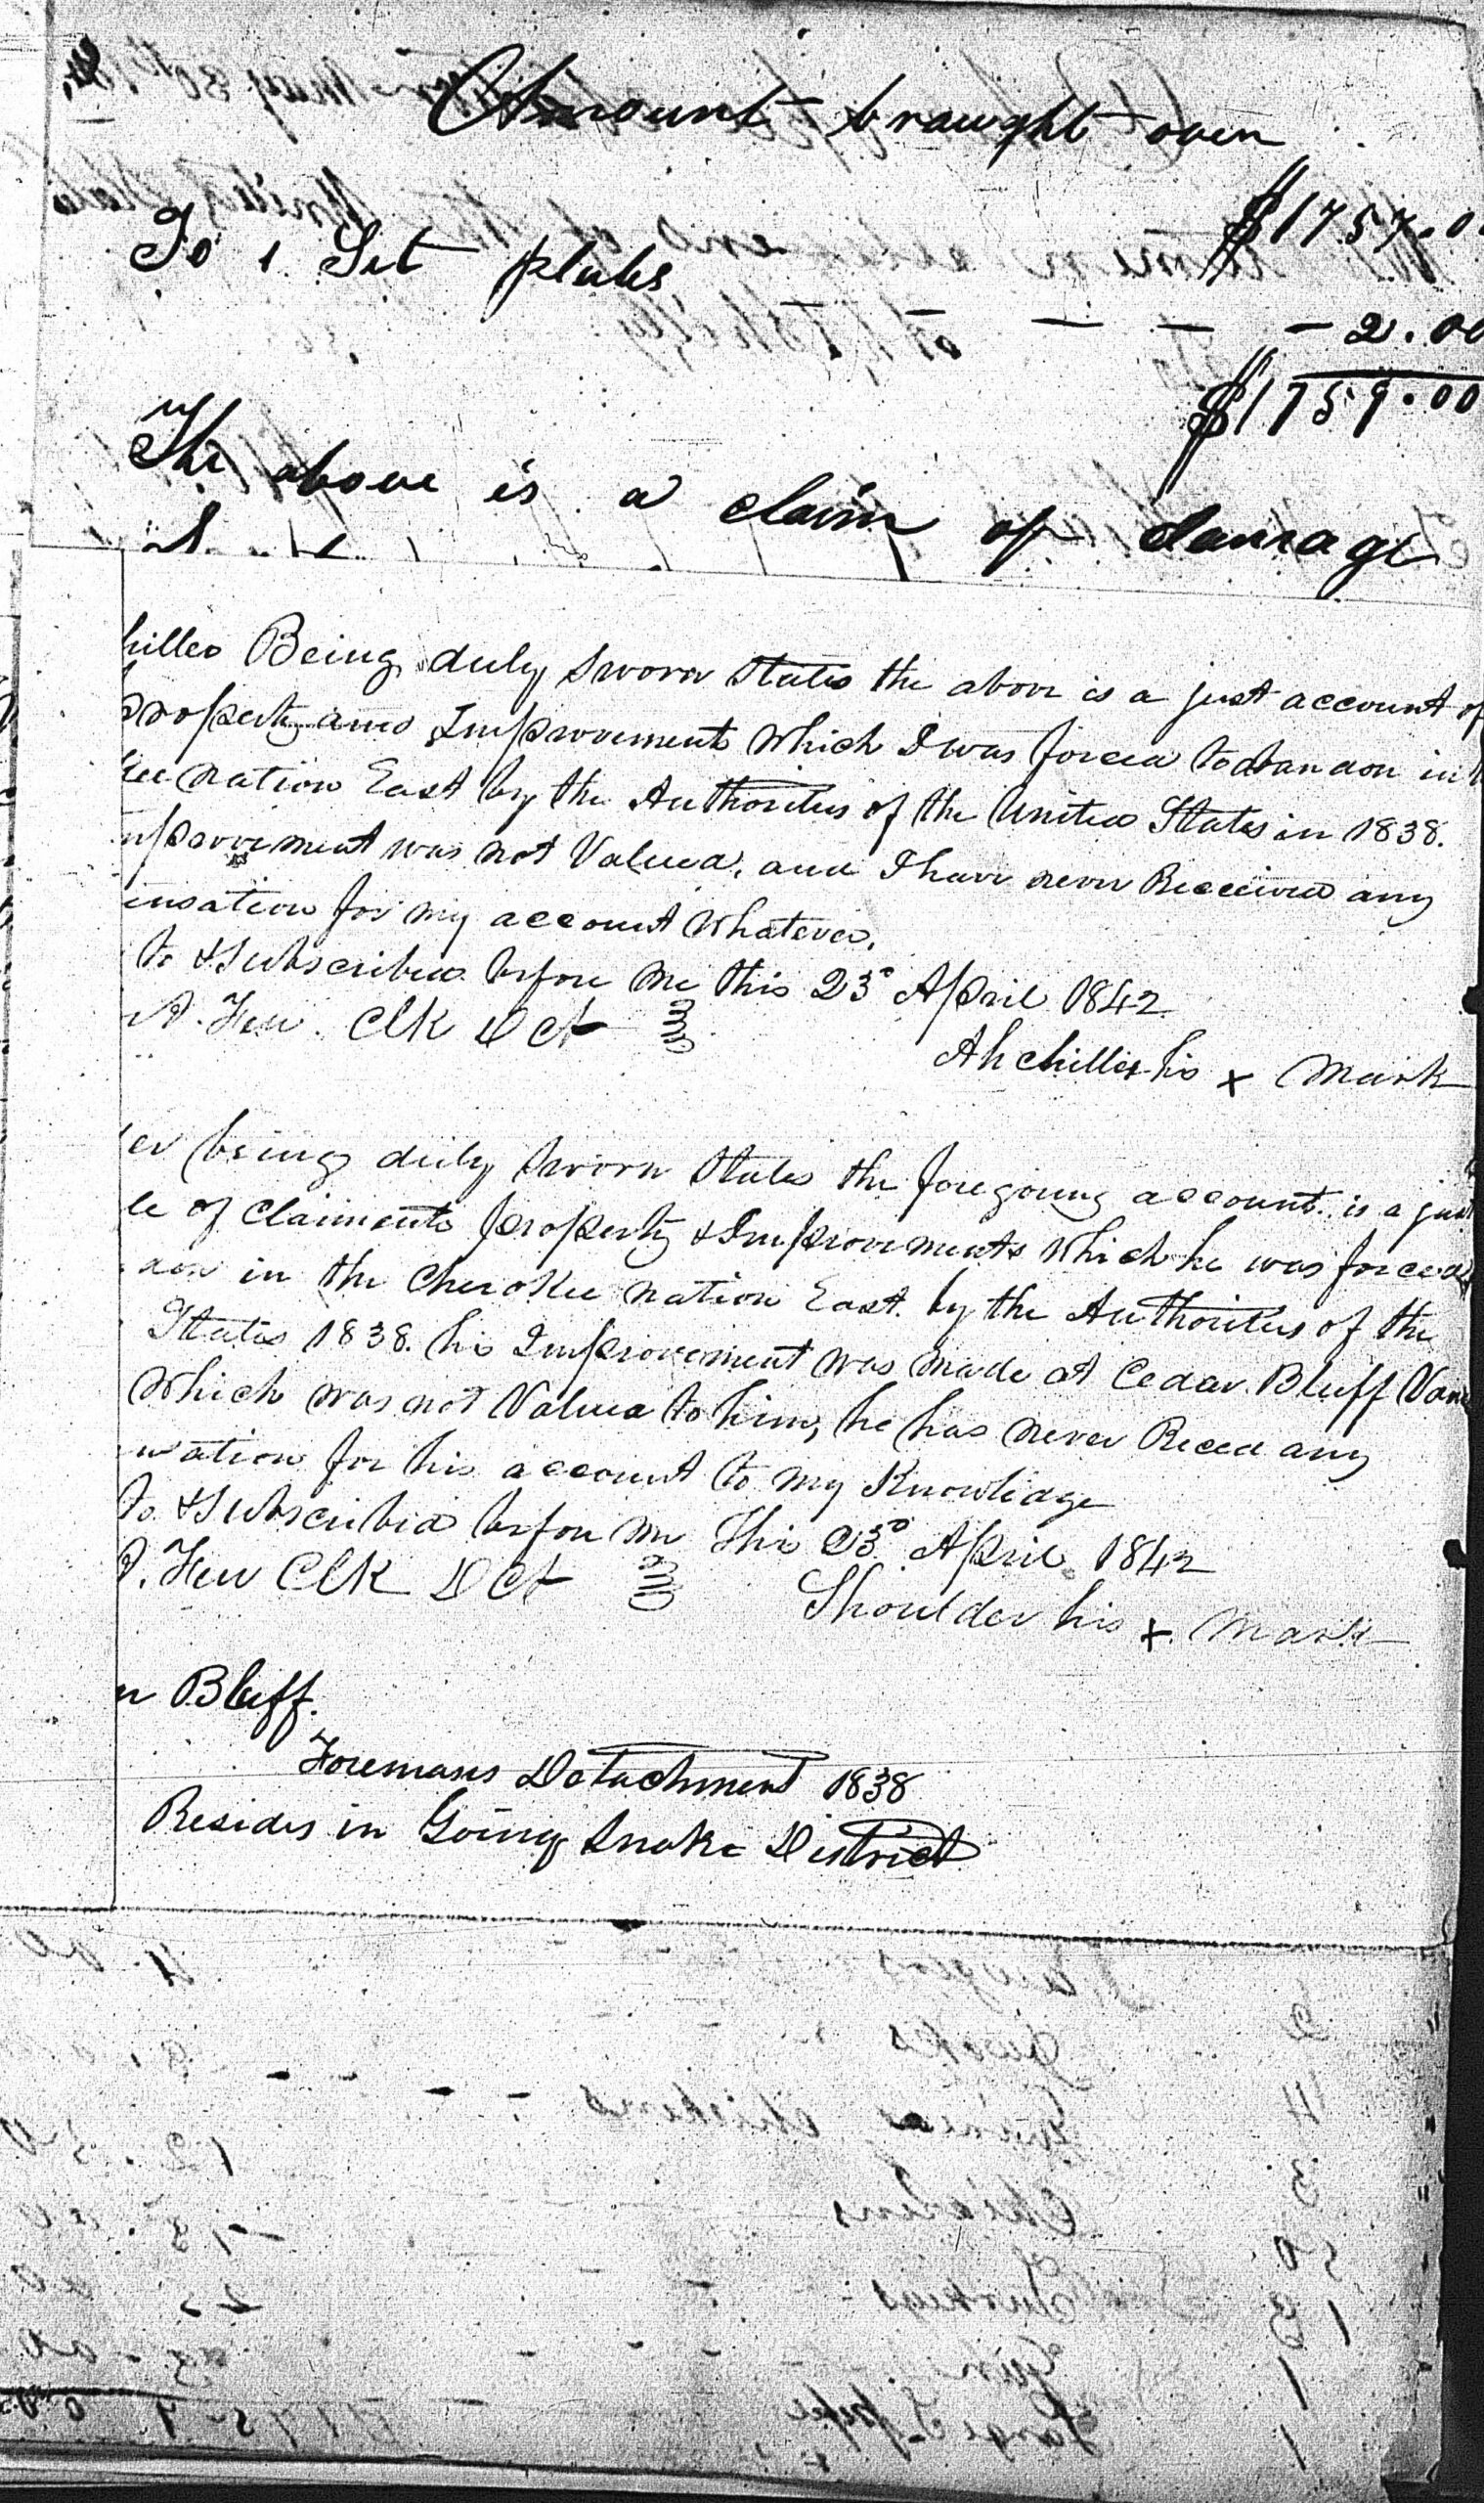 Amount braught over
$1757.0
To 1 Set plates
- - - 2.00
$1759.00
The above is a claim of damage
hilles Being duly sworn states the above is a just account of
property and Improvements which I was forced to abandon in
kee nation East by the Authorities of the United States in 1838.
mprovement was not Valued, and I have never Received any
ensation for my account whatever.
to & Subscribed before me this 23d April 1842
Clk D Ct
Ahchilles his x mark
er being duly sworn states the foregoing account is a just
le of Claimants property & Improvements which he was forced
don in the Cherokee nation East by the Authorities of the
States 1838. his Improvement was made at Cedar Bluff Vans
Which was not Valued to him, he has never Recd any
nsation for his account to my Knowledge
to & Subscribed before me This 23d April 1842
Clk D Ct
Shoulder his x mark
r Bluff.
Foremans Detachment 1838
Resides in Going Snake District